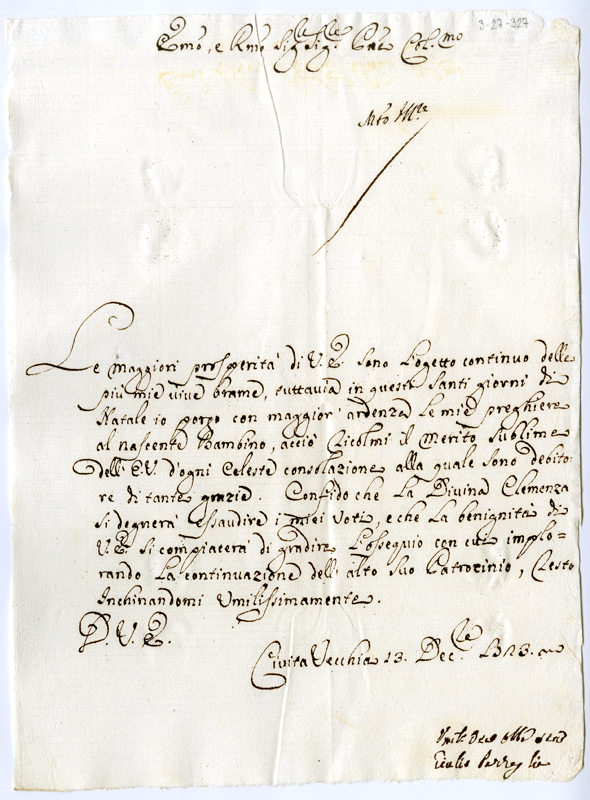 3-27-327
Emo, e Rmo Sig.re Sig.re Pne Col.mo
Le maggiori prosperità di V. E. sono l'ogetto continuo delle
più mie vive brame, tuttavia in questi santi giorni di
Natale io porgo con maggior' ardenza le mie preghiere
al nascente Bambino, acciò ricolmi il merito sublime
dell' E.V. d'ogni celeste consolazione alla quale sono debito-
re di tante grazie. Confido che la Divina Clemenza
si degnerà essaudire i miei voti, e che la benignità di
V. E. si compiacerà di gradire l'ossequio con cui implo-
rando la continuazione dell' alto suo Patrocinio, resto
inchinandomi umilissimamente.
D. V. E.
Civita Vecchia 13. Dec.
Giulio